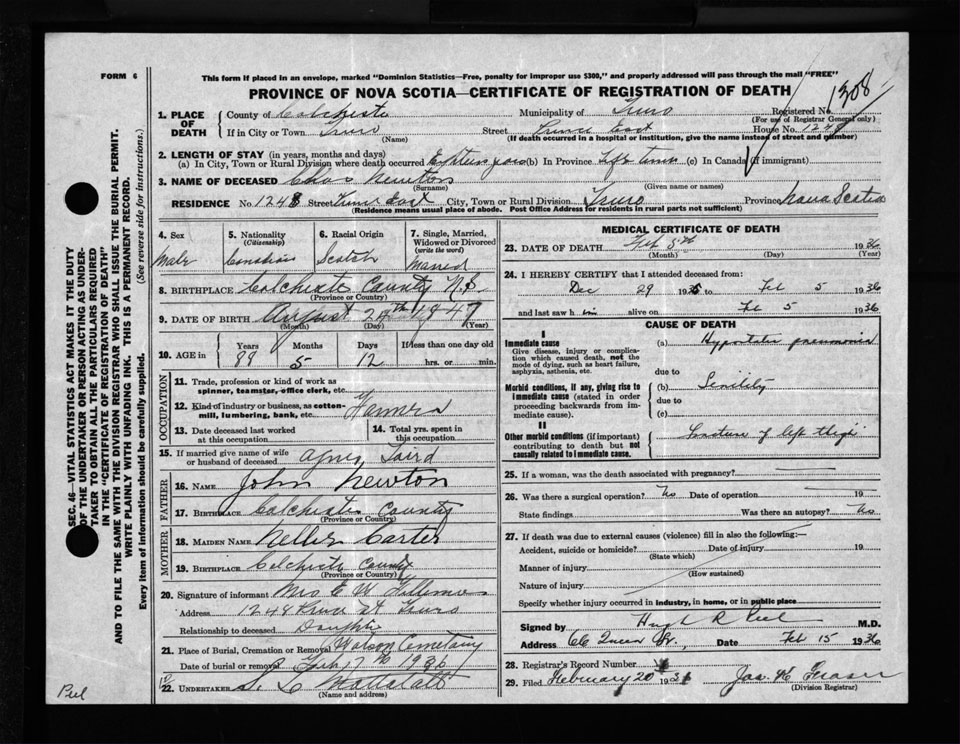 FORM 6
This form if placed in an envelope, marked "Dominion Statistics—Free, penalty for improper use $300," and properly addressed will pass through the mail "FREE"
PROVINCE OF NOVA SCOTIA—CERTIFICATE OF REGISTRATION OF DEATH
1308
1. PLACE OF DEATH
County of Colchester Municipality of Truro Registered No.
(For use of Registrar General only)
If in City or Town Truro Street Prince East House No. 1248
(Name) (If death occurred in a hospital or institution, give the name instead of street and number)
2. LENGTH OF STAY (in years, months and days)
(a) In City, Town or Rural Division where death occurred Eighteen years (b) In Province Life time (c) In Canada (if immigrant)
3. NAME OF DECEASED Chas Newton
(Surname) (Given name or names)
RESIDENCE No. 1248 Street Prince East City, Town or Rural Division Truro Province Nova Scotia
(Residence means usual place of abode. Post Office Address for residents in rural parts not sufficient)
4. Sex 5. Nationality (Citizenship) 6. Racial Origin 7. Single, Married, Widowed or Divorced (write the word)
Male Canadian Scotch Married
8. BIRTHPLACE Colchester County N.S
(Province or Country)
9. DATE OF BIRTH August 24th 1847
(Month) (Day) (Year)
10. AGE in Years Months Days If less than one day old
88 5 12 hrs. or min.
OCCUPATION
11. Trade, profession or kind of work as spinner, teamster, office clerk, etc.
12. Kind of industry or business, as cotton-mill, lumbering, bank, etc.
13. Date deceased last worked at this occupation
14. Total yrs. spent in this occupation
15. If married give name of wife or husband of deceased Agnes Laird
FATHER
16. NAME John Newton
17. BIRTHPLACE Colchester County
(Province or Country)
MOTHER
18. MAIDEN NAME Carter
19. BIRTHPLACE Colchester County
(Province or Country)
20. Signature of informant Mrs E W
Address 1248 Prince St Truro
Relationship to deceased Daughter
21. Place of Burial, Cremation or Removal Watson Cemetary
Date of burial or removal Feb 7th 1936
22. UNDERTAKER
(Name and address)
MEDICAL CERTIFICATE OF DEATH
23. DATE OF DEATH Feb 5th 1936
(Month) (Day) (Year)
24. I HEREBY CERTIFY that I attended deceased from:
Dec 29 1935 to Feb 5 1936
and last saw him alive on Feb 5 1936
CAUSE OF DEATH
I
Immediate cause
Give disease, injury or complication which caused death, not the mode of dying, such as heart failure, asphyxia, asthenia, etc.
(a) pneumonia
due to
Morbid conditions, if any, giving rise to immediate cause (stated in order proceeding backwards from immediate cause).
(b) Senility
due to
(c)
II
Other morbid conditions (if important) contributing to death but not causally related to immediate cause.
Fracture of left thigh
25. If a woman, was the death associated with pregnancy?
26. Was there a surgical operation? No Date of operation 19
State findings Was there an autopsy? No
27. If death was due to external causes (violence) fill in also the following:—
Accident, suicide or homicide? Date of injury 19
(State which)
Manner of injury
(How sustained)
Nature of injury
Specify whether injury occurred in industry, in home, or in public place
Signed by Hugh R Peel M.D.
Address 66 Queen St., Date Feb 15 1936
28. Registrar's Record Number
29. Filed February 20 1936 Jas. W Fraser
(Division Registrar)
SEC. 46—VITAL STATISTICS ACT MAKES IT THE DUTY
OF THE UNDERTAKER OR PERSON ACTING AS UNDERTAKER TO OBTAIN ALL THE PARTICULARS REQUIRED
IN THE "CERTIFICATE OF REGISTRATION OF DEATH"
AND TO FILE THE SAME WITH THE DIVISION REGISTRAR WHO SHALL ISSUE THE BURIAL PERMIT.
WRITE PLAINLY WITH UNFADING INK. THIS IS A PERMANENT RECORD.
Every item of information should be carefully supplied. (See reverse side for instructions.)
Peel